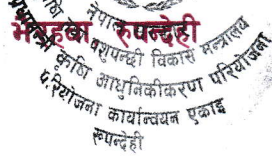 भैरहवा, रुपन्देही
नेपाल
कृषि
पशुपन्छी विकास मन्त्रालय
प्रधानमन्त्री कृषि आधुनिकीकरण परियोजना
परियोजना कार्यान्वयन एकाइ
रूपन्देही